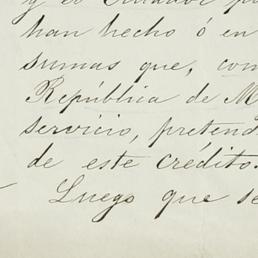 y el
han hecho ó en
sumas que, con
República de M
servicio, pretend
de este crédito.
Luego que se